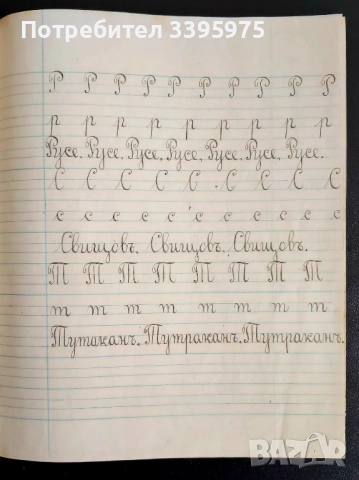 Потребител 3395975
Р Р Р Р Р Р Р Р Р Р
р р р р р р р р р
Русе. Русе. Русе. Русе. Русе. Русе. Русе.
С С С С С С С С С
с с с с с с с с с с с
Свищовъ. Свищовъ. Свищовъ.
Т Т Т Т Т Т Т Т
т т т т т т т т
Тутаканъ. Тутраканъ. Тутраканъ.
BAZAR